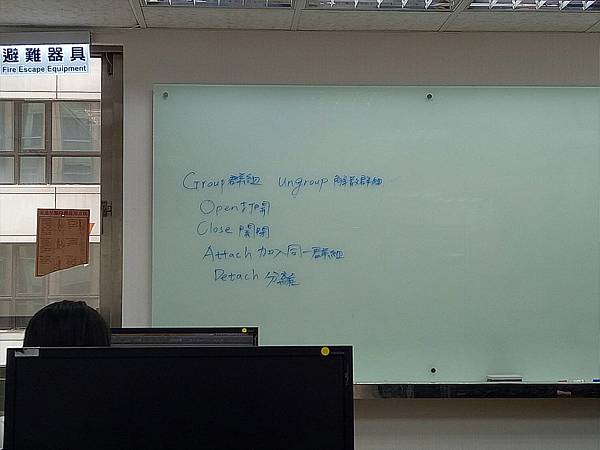 避難器具
Fire Escape Equipment
Group 群組 Ungroup 解散群組
Open 打開
Close 關閉
Attach 加入同一群組
Detach 分離